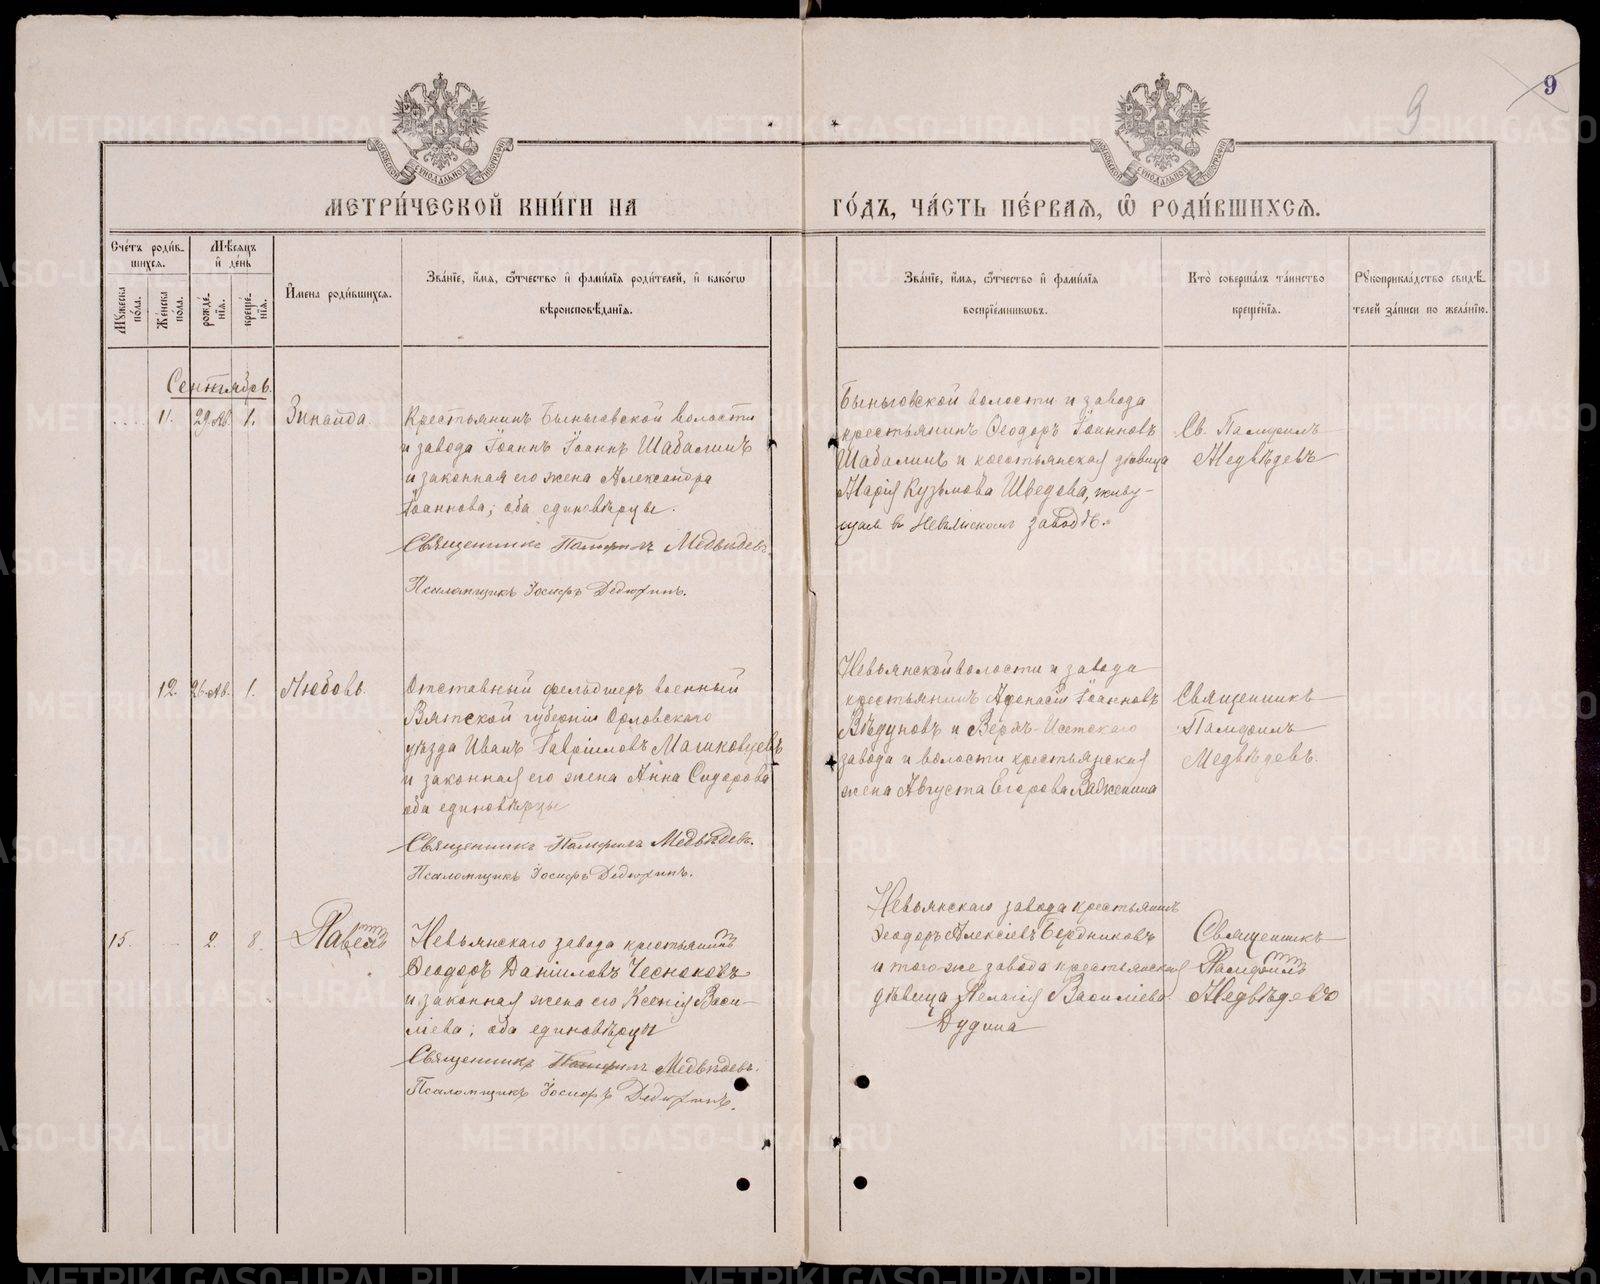 9
9
МЕТРИ́ЧЕСКОЙ КНИ́ГИ НА
ГО́ДЪ, ЧА́СТЬ ПЕ́РВАѦ, Ѡ҆ РОДИ́ВШИХСѦ.
Сче́тъ роди́в-
шихсѧ.
Мꙋ́жеска по́ла.
Же́нска по́ла.
Мѣ́сѧцъ
и҆ де́нь
рожде́-
нїѧ.
креще́-
нїѧ.
И҆мена роди́вшихсѧ.
Зва́нїе, и҆́мѧ, ѻ҆́тчество и҆ фами́лїѧ роди́телей, и҆ како́гѡ
вѣроисповѣ́данїѧ.
Зва́нїе, и҆́мѧ, ѻ҆́тчество и҆ фами́лїѧ
воспрїе́мникѡвъ.
Кто̀ соверша́лъ та́инство
креще́нїѧ.
Рꙋкоприкла́дство свидѣ́-
телей за́писи по жела́нїю.
Сентябрь.
11. 29 Ав. 1. Зинаида.
Крестьянинъ Быньговской волости
и завода Іоаннъ Іоаннъ Шабалинъ
и законная его жена Александра
Іоаннова; оба единовѣрцы.
Священникъ Памфилъ Медвѣдевъ.
Псаломщикъ Іосифъ Дедюхинъ.
Быньговской волости и завода
крестьянинъ Ѳеодоръ Іоанновъ
Шабалинъ и крестьянская дѣвица
Марія Кузьмова Шведова, живу-
щая въ Невьянскомъ заводѣ.
Св. Памфилъ
Медвѣдевъ
12. 26 Ав. 1. Любовь.
Отставный фельдшеръ военный
Вятской губерніи Орловскаго
уѣзда Иванъ Гавріиловъ Машковцевъ
и законная его жена Анна Сидорова
оба единовѣрцы
Священникъ Памфилъ Медвѣдевъ.
Псаломщикъ Іосифъ Дедюхинъ.
Невьянской волости и завода
крестьянинъ Аѳенасій Іоанновъ
Вѣдуновъ и Верхъ-Исетскаго
завода и волости крестьянская
жена Августа Егорова Важенина
Священникъ
Памфилъ
Медвѣдевъ.
15. 2. 8. Павелъ
Невьянскаго завода крестьянинъ
Ѳеодоръ Даніиловъ Чесноковъ
и законная жена его Ксенія Васи-
ліева; оба единовѣрцы
Священникъ Памфилъ Медвѣдевъ.
Псаломщикъ Іосифъ Дедюхинъ.
Невьянскаго завода крестьянинъ
Ѳеодоръ Алексіевъ Бердниковъ
и того-же завода крестьянская
дѣвица Пелагія Василіева
Дудина
Священникъ
Памфилъ
Медвѣдевъ
METRIKI.GASO-URAL.RU